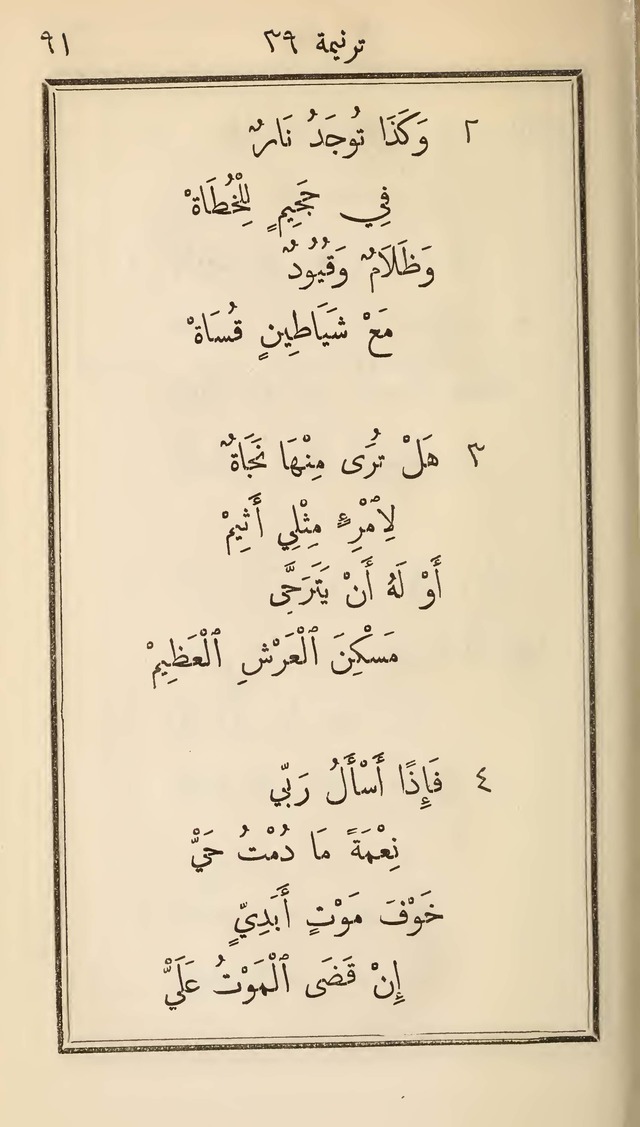 ترنيمة ٣٩ ٩١
٢ وَكَذَا تُوجَدُ نَارٌ
فِي جَحِيمٍ لِلْخُطَاةْ
وَظَلَامٌ وَقُيُودٌ
مَعْ شَيَاطِينٍ قُسَاةْ
٣ هَلْ تُرَى مِنْهَا نَجَاةٌ
لِٱمْرِءٍ مِثْلِي أَثِيمْ
أَوْ لَهُ أَنْ يَتَرَجَّى
مَسْكِنَ ٱلْعَرْشِ ٱلْعَظِيمْ
٤ فَإِذًا أَسْأَلُ رَبِّي
نِعْمَةً مَا دُمْتُ حَيّْ
خَوْفَ مَوْتٍ أَبَدِيٍّ
إِنْ قَضَى ٱلْمَوْتُ عَلَيّْ